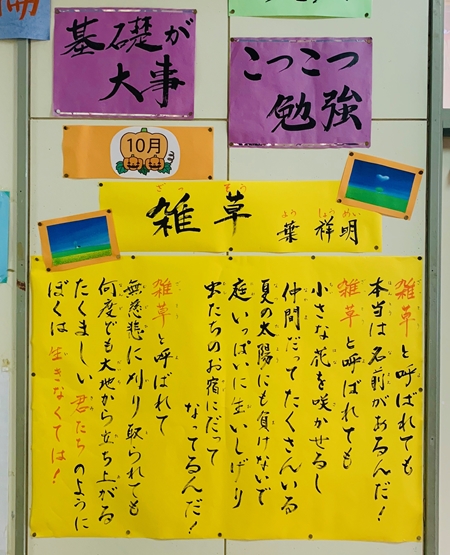 基礎が
大事
こっこつ
勉強
10月
雑草
ざっ そう
葉祥明
よう しょう めい
雑草と呼ばれても
本当は名前があるんだ!
雑草と呼ばれても
小さな花を咲かせるし
仲間だってたくさんいる
夏の太陽にも負けないで
庭いっぱいに生いしげり
虫たちのお宿にだって
なってるんだ!
雑草と呼ばれて
無慈悲に刈り取られても
何度でも大地から立ち上がる
たくましい君たちのように
ぼくは生きなくては!